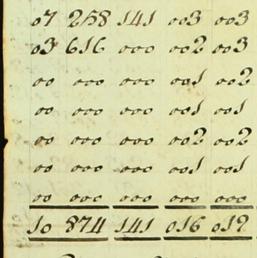 07 258 141 003 003
03 616 000 002 003
00 000 000 001 002
00 000 000 001 001
00 000 000 002 002
00 000 000 001 001
00 000 000 000 000
10 874 141 016 012